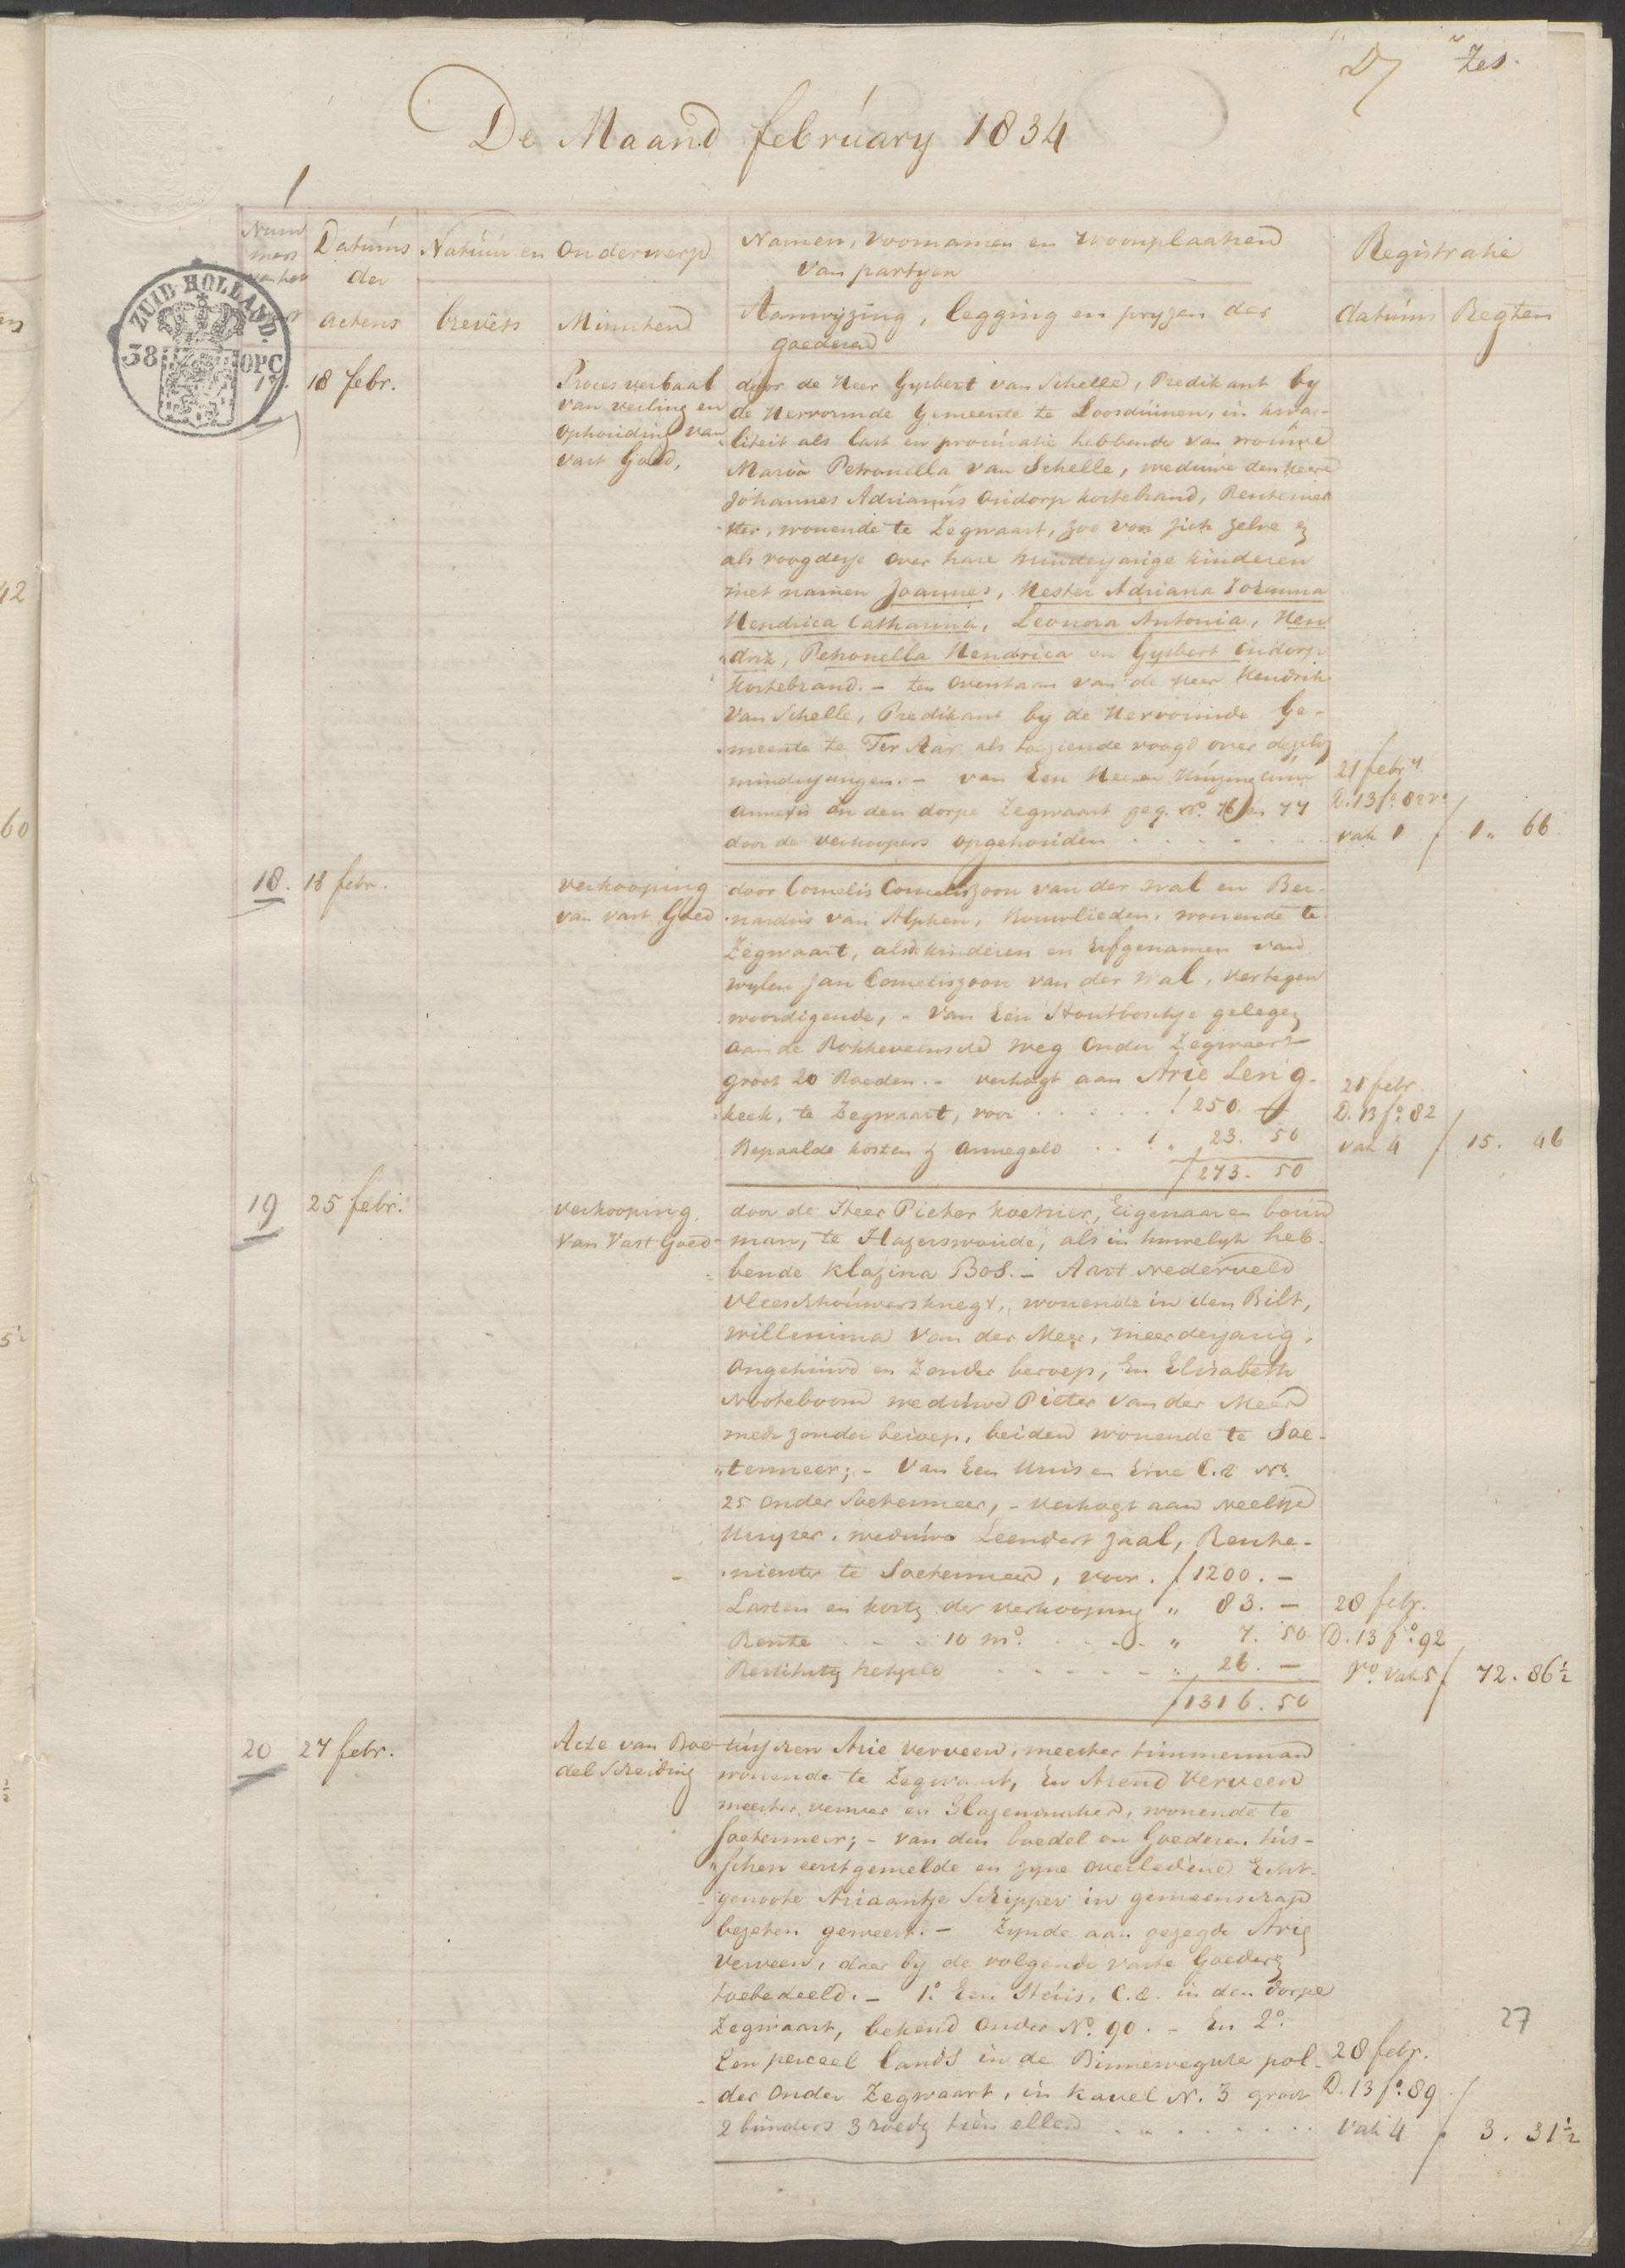 Zes.
De Maand february 1834
Num
mers
Datums
der
actens
Natuur en Onderwerp
brevets
Minuten
Namen, Voornamen en Woonplaatsen
van partyen
Aanwyzing, legging en pryzen der
goederen
Registratie
datums
Regten
ZUID-HOLLAND.
38 OPC
17. 18 febr.
Proces verbaal
van veiling en
ophouding van
vast Goed,
door de Heer Gysbert van Schelle, Predikant by
de Hervormde Gemeente te Loosduinen, in kwa-
liteit als last en procuratie hebbende van vrouwe
Maria Petronella van Schelle, weduwe den Heere
Johannes Adrianus Oudorp Kortebrand, Rentemees
ster, wonende te Zegwaart, zoo voor zich zelve en
als voogdesse over hare minderjarige kinderen
met namen Joannes, Hester Adriana Johanna
Hendrica Catharina, Leonora Antonia, Hen
drik, Petronella Hendrica en Gysbert Oudorp
Kortebrand. - ten overstaan van de Heer Hendrik
van Schelle, Predikant by de Hervormde Ge-
meente te Ter Aar als toeziende voogd over dezelve
minderjarigen. - van Een Heeren Huizinge cum
annexis in den dorpe Zegwaart geq. No. 76 en 77
door de verkoopers opgehouden
21 febry.
D. 13 fo. 82 vo.
vak 1 f 1 „ 66
18. 18 febr.
Verkooping
van vast Goed
door Cornelis Corneliszoon van der Wal en Ber-
nardus van Alphen, Bouwlieden, wonende te
Zegwaart, als kinderen en Erfgenamen van
wylen Jan Corneliszoon van der Wal, vertegen
woordigende, - van Een Houtboschje gelegen
aan de Rokkeveensche weg onder Zegwaart
groot 20 Roeden. - verkogt aan Arie Leng-
keek, te Zegwaart, voor f 250. -
Bepaalde kosten & armegeld „ 23. 50
f 273. 50
21 febr.
D. 13 fo. 82
vak 4 f 15. 46
19 25 febr.
Verkooping
van Vast Goed
door de Heer Pieter Koetsier, Eigenaar en bouw
man, te Hazerswoude, als in huwelyk heb-
bende Klazina Bos. - Aart Nederveld
Vleeschhouwersknegt, wonende in den Bilt,
Willemina van der Meer, meerderjarig,
ongehuwd en zonder beroep, En Elisabeth
Nooteboom weduwe Pieter van der Meer
mede zonder beroep, beiden wonende te Soe-
termeer; - Van Een Huis en Erve C.a. No.
25 onder Soetermeer, - Verkogt aan Neeltje
Huyser, weduwe Leendert Zaal, Rente-
nierster te Soetermeer, voor f 1200. -
Lasten en kosten der verkooping „ 83. -
Rente 10 mo. „ 7. 50
Restitutie hekgeld „ 26. -
f 1316. 50
28 febr.
D. 13 fo. 92
vo. vak 5 f 72. 86½
20 27 febr.
Acte van Boe-
del Scheiding
tusschen Arie Verveen, meester timmerman
wonende te Zegwaart, En Arend Verveen
meester verwer en Glazenmaker, wonende te
Soetermeer; - van den boedel en Goederen tus-
schen eerstgemelde en zyne overledene Echt-
genoote Ariaantje Schipper in gemeenschap
bezeten geweest. - Zynde aan gezegde Arie
Verveen, daar by de volgende vaste Goederen
toebedeeld. - 1o. Een Huis, C.a. in den dorpe
Zegwaart, bekend onder No. 90. - En 2o.
Een perceel lands in de Binnenwegsche pol-
der onder Zegwaart, in kavel N. 3 groot
2 bunders 3 roeden tien ellen
28 febr.
D. 13 fo. 89
vak 4 f 3. 31½
27